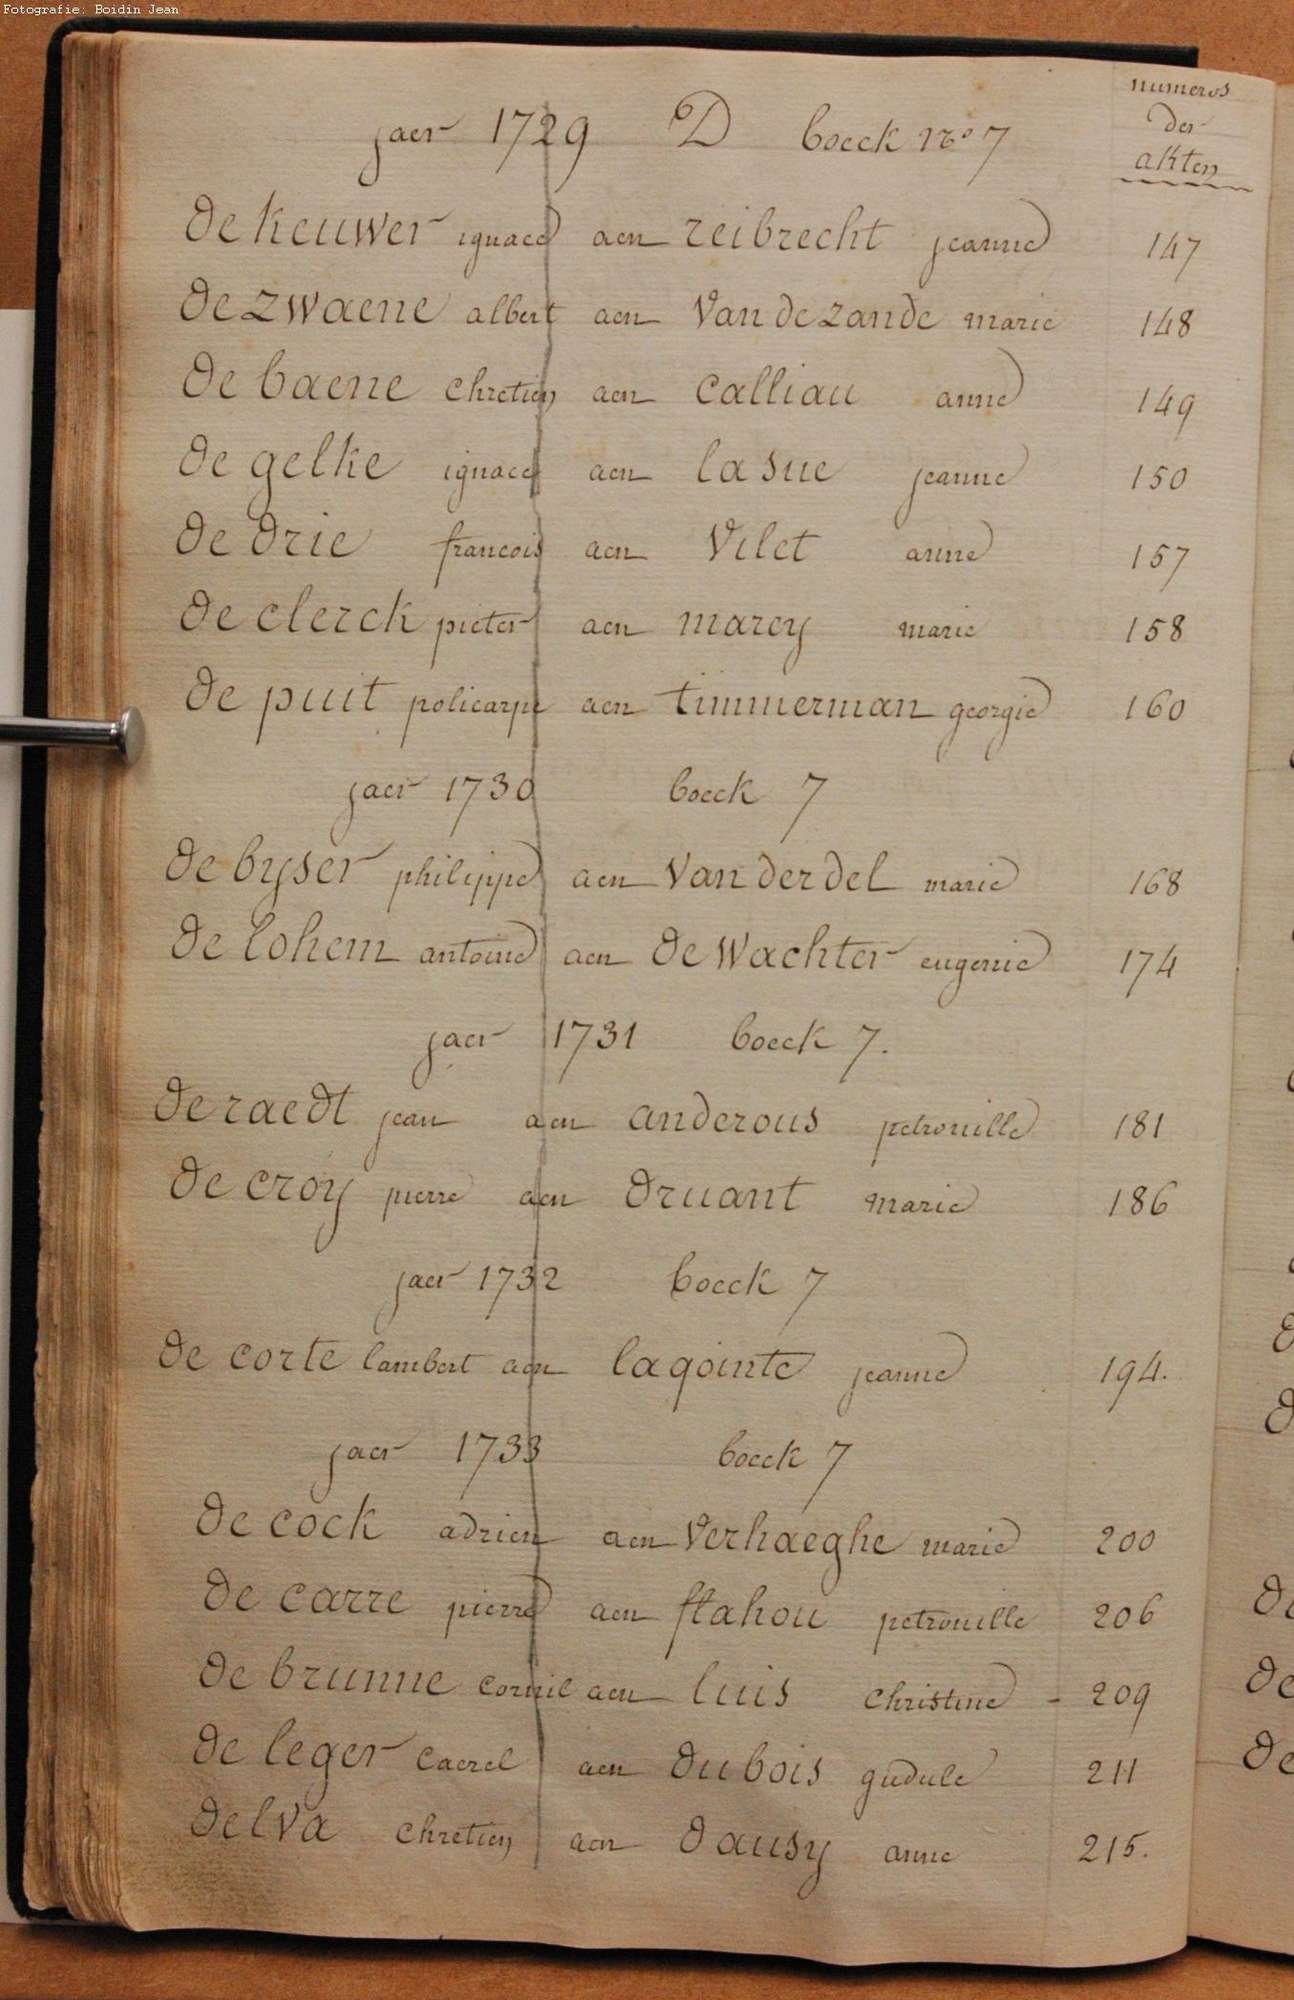 Fotografie: Boidin Jean
numeros
der
akten
jaer 1729 D boeck No 7
de keuwer ignace aen reibrecht jeanne 147
de zwaene albert aen van de zande marie 148
de baene chretien aen calliau anne 149
de gelke ignace aen lasue jeanne 150
de drie francois aen vilet anne 157
de clerck pieter aen marcy marie 158
de puit policarpe aen timmerman georgie 160
jaer 1730 boeck 7
de byser philippe aen van der del marie 168
de lohem antoine aen de wachter eugenie 174
jaer 1731 boeck 7.
de raedt jean aen anderous petronille 181
de croy pierre aen druant marie 186
jaer 1732 boeck 7
de corte lambert aen lagointe jeanne 194.
jaer 1733 boeck 7
de cock adrien aen verhaeghe marie 200
de carre pierre aen stahou petronille 206
de brunne cornil aen luis christine - 209
de leger caerel aen dubois gudule 211
delva chretien aen dausy anne 215.
de
de